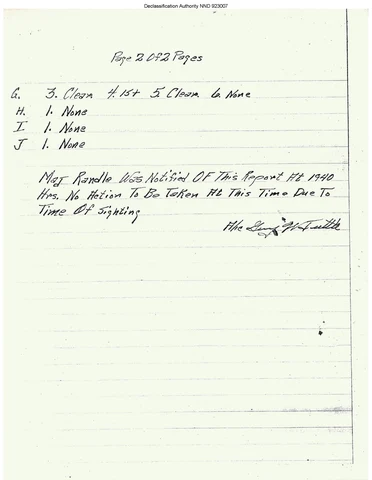 Declassification Authority NND 923007
Page 2 Of 2 Pages
G. 3. Clear 4. 15+ 5. Clear 6. None
H. 1. None
I 1. None
J 1. None
Maj Randle Was Notified Of This Report At 1940
Hrs. No Action To Be Taken At This Time Due To
Time Of Sighting